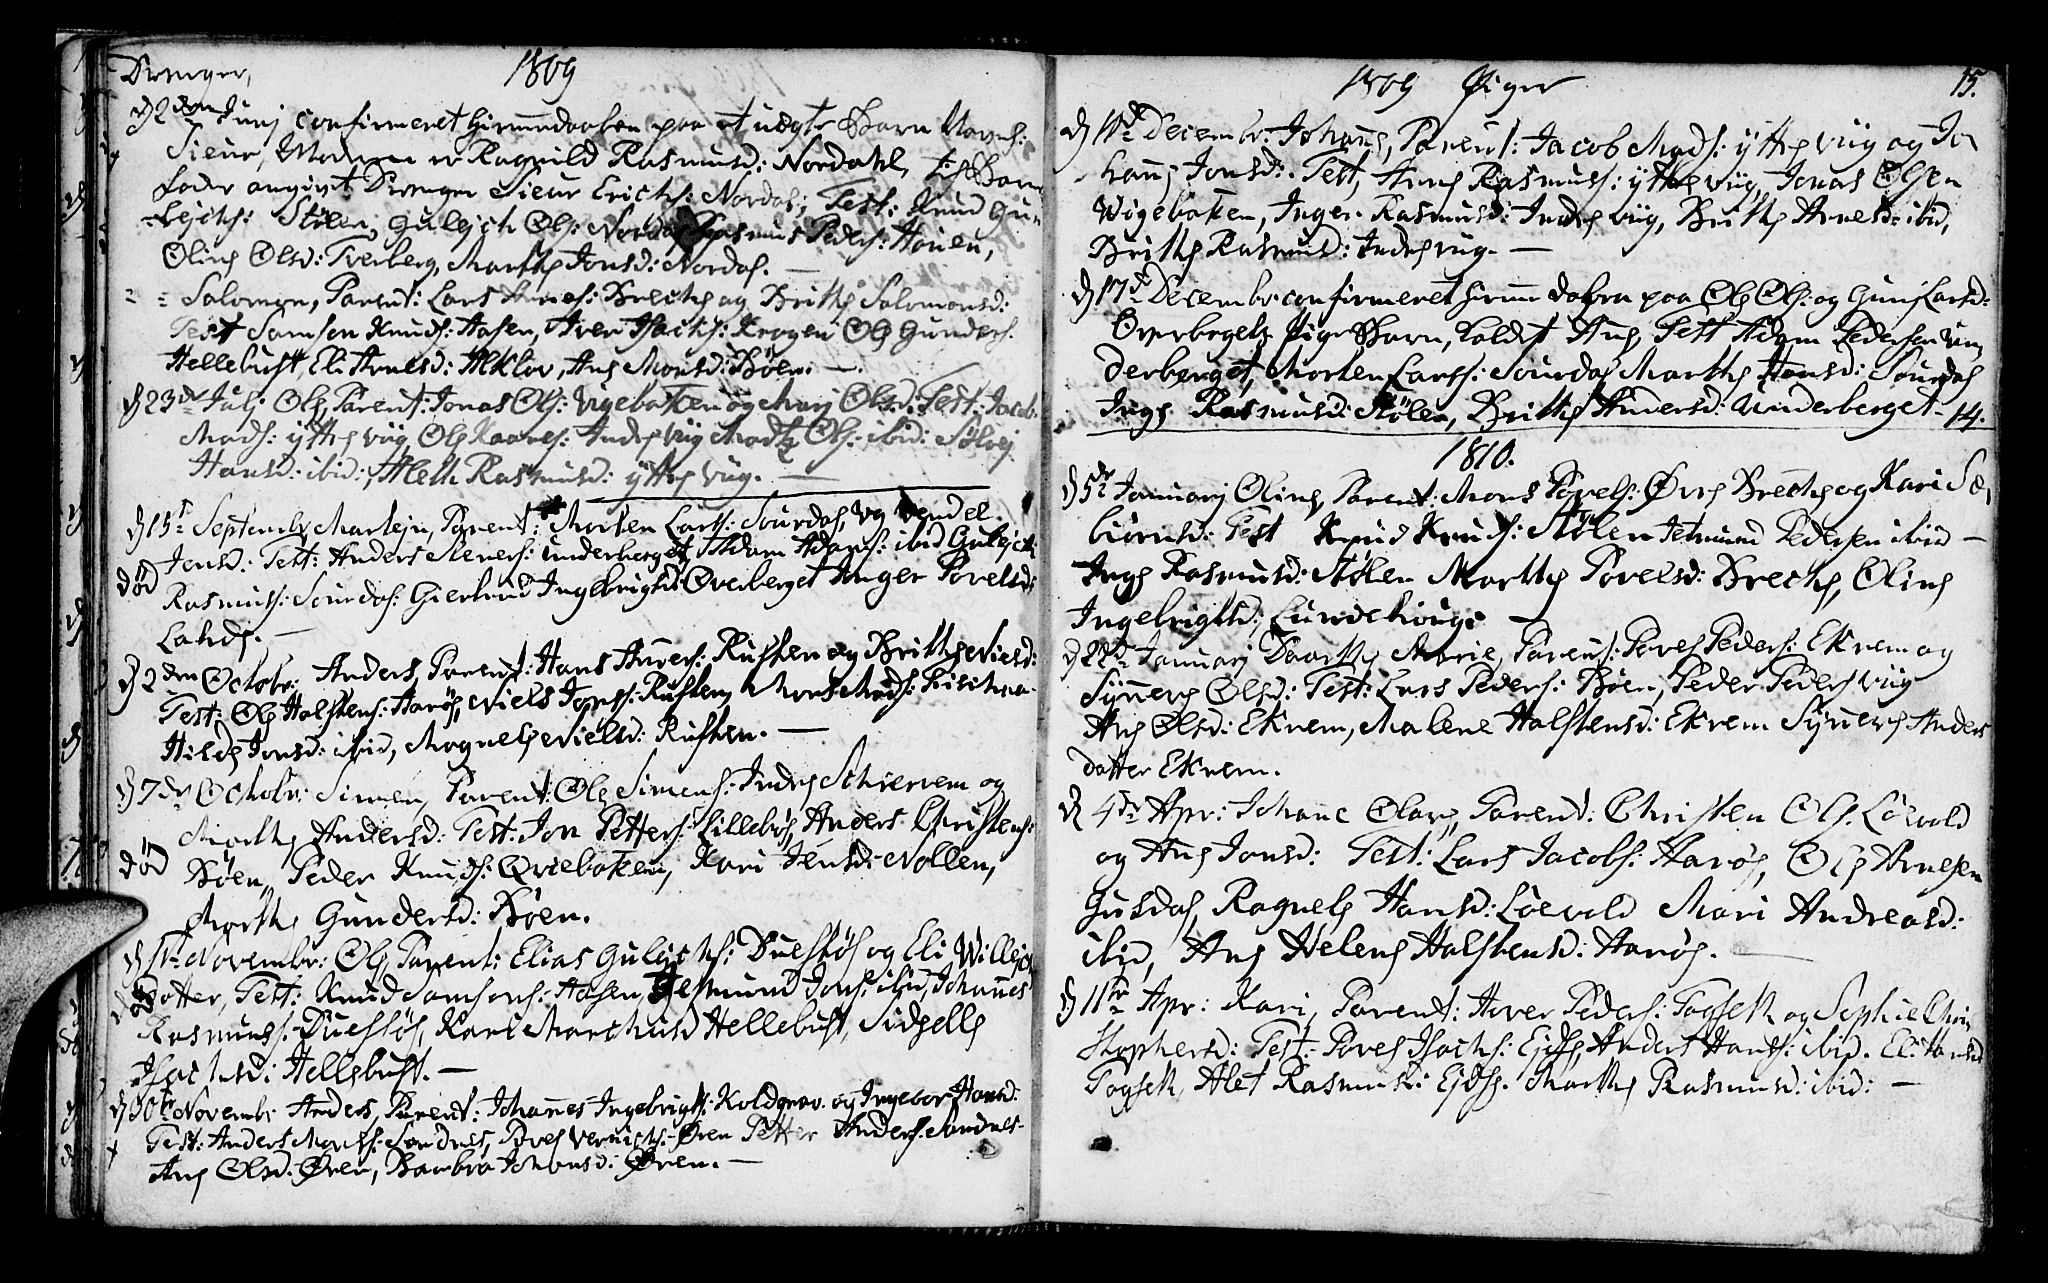 Drenger,
1809
d 2den Junj confirmeret Hiemmedaaben paa et uægte Barn Navnl:
Sieur, Moderen er Ragnild Rasmusd: Nordahl, til Barne
fader angivet Drenger Sieur Erichs: Nordas; Test: Knud Gu-
lejchs: Stölen, Gulejch Ols: Nordas Rasmus Peders: Houen,
Oline Olsd: Tverberg, Marthe Jonsd: Nordas. —
" = Salomon, Parent: Lars Arnes: Breche og Brithe Salomonsd:
Test Samson Knuds: Hasen, Iver Isachs: Krogen Ole Gunders.
Hellebust, Eli Arnesd: Alklov, Ane Monsd: Böen. —.
d 23de Julj Ole, Parent: Jonas Ols: Vigebakken og Marj Olsd: Test: Jacob
Mads: ytthe Viig Ole Kaares: Indre Viig Mads Ols: ibid: Sölvej
Hansd: ibid:, Aleth Rasmusd: ytthe Viig. —
d 15de Septembr Martejn, Parent: Morten Lars: Sourdas, og Vendel.
Jensd: Test: Anders Steners: Underberget, Adam Adams: ibid Gulejch
død
Rasmus: Sourdas: Giertrud Ingebrigtsd: Overberget Inger Povelsd:
Lande. —
d 2den Octobr: Anders, Parent: Hans Anders: Rusten og Brithe Nielsd:
Test: Ole Halstens: Harøe, Niels Jons: Rusten, Mons Mads: Lischna-
Hilde Jonsd: ibid, Magnele Nielsd: Rusten. —
d 7de Octobr: Simen, Parent: Ole Simens: Indre Schiervem og
Marthe Andersd: Test: Jon Petters: Lillebøe, Anders Christens:
død
Böen, Peder Knuds: Qviebakken, Kari Jensd: Nollen,
Marthe Gundersd: Böen.
d 5te Novembr: Ole Parent: Elias Gulejchs: Duestöl og Eli Willejchs
datter, Test: Knud Samsons: Hasen, Jetmund Jons: ibid, Johannes
Rasmuss: Duestöl, Kari Marchusd Hellebust, Sidselle
Isachsd: Hellebust. —
d 30te Novembr Anders, Parent: Johannes Ingebrigts: Koldgrav. og Ingebor Hansd:
Test: Anders Mons: Sandnes, Povel Vernichs: Ören Petter Anders: Sandnes-
Ane Olsd: Ören, Barbro Johansd: Ören. —
1809 Piger
15.
d 10de Decembr: Johanne, Parent: Jacob Mads: ytthe Viig og Jo
hanne Jonsd: Test, Arne Rasmuss: ytthe Viig, Jonas Olsen
Vigebakken, Inger Rasmusd: Indre Viig, Brithe Arnesd: ibid,
Brithe Rasmusd: Indre Viig. —
d 17de Decembr: confirmeret Hiemmedaaben paa Ole Ols: og Gunj Larsd:
Overbergets Pige Barn, kaldet Ane, Test Adam Pedersen Un-
derberget, Morten Lars: Sourdas Marthe Hansd: Sourdas
Inge Rasmusd: Stölen, Brithe Andersd: Underberget. 14.
1810.
d 5te Januarj Oline, Parent: Mons Povels: Övre Breche og Kari Sæ-
biörnsd: Test Knud Knuds: Stölen Jetmund Pedersen ibid —
Inge Rasmusd: Stölen Marthe Povelsd: Breche, Oline
Ingebrigtsd: Lundehoug: —
d 22de Januarj Dorthe Marie, Parent: Povel Peders: Ekrem og
Synneve Olsd: Test: Lars Peders: Böen, Peder Peders Viig
Ane Olsd: Ekrem, Malene Halstensd: Ekrem Synneve Anders
datter Ekrem.
d 4de Apr: Johane Olave, Parent: Christen Ols: Löevold
og Ane Jonsd: Test: Lars Jacobs: Harøe, Ole Arnesen
Gusdas, Ragnele Hansd: Löevold Mari Andreasd:
ibid, Ane Helene Halstensd: Harøe. —
d 11te Apr: Kari, Parent: Iver Peders: Tagseth og Sophie Chri-
stophersd: Test: Povel Isachs: Ejde, Anders Hans: ibid. Eli Hansd
Tagseth, Alet Rasmusd: Ejde. Marthe Rasmusd: ibid: —